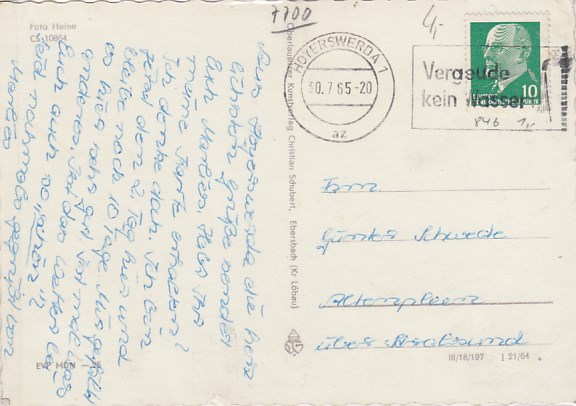 Foto Heine
CS 10864
7700
4,-
HOYERSWERDA 1
30.7.65-20
az
Vergeude
kein Wasser
10
846 1,-
Aus Hoyerswerda die
Grüße sendet
Marlies. Habt Ihr
meine Karte erhalten?
Ich denke doch. Ich bin
den 2. Tag hier und
bleibe noch 10 Tage.
es hier sehr gut. Ist mal was
anderes. Ist das Wetter bei
Euch auch so "schön"?
Seid nochmals gegrüßt von
Marlies
EVP MDN
Oberlausitzer Kunstverlag Christian Schubert, Ebersbach (Kr Löbau)
Fam.
Günter Schwede
Altenpleen
über Stralsund
III/18/197 I 21/64